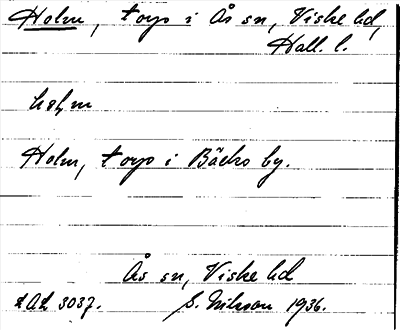 Holm, torp i Ås sn, Viske hd,
Hall. l.
hɔlm
Holm, torp i Bäcks by.
Ås sn, Viske hd
LAL 3037. S. Nilsson 1936.